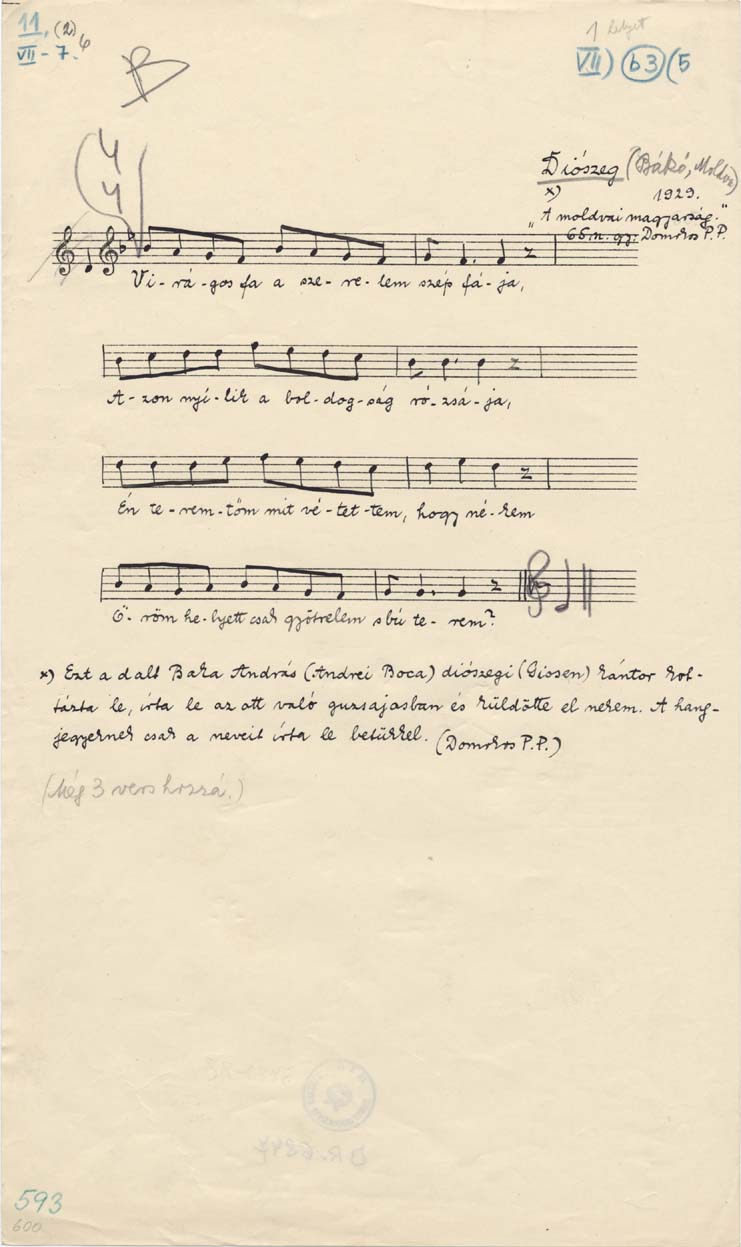 11, (2)
VII - 7.
B
1 helyet
VII) b3 (5
4
4
Diószeg (Bákó, Moldva)
x) 1929.
"A moldvai magyarság."
65.n. gy: Domokos P.P.
Vi-rá-gos fa a sze-re-lem szép fá-ja,
A-zon nyí-lik a bol-dog-ság ró-zsá-ja,
Én te-rem-tőm mit vé-tet-tem, hogy né-kem
Ö-röm he-lyett csak gyötrelem s bú te-rem?
x) Ezt a dalt Baka András (Andrei Boca) diószegi (Giosen) kántor kot-
tázta le, írta le az ott való guzsajasban és küldötte el nekem. A hang-
jegyeknek csak a neveit írta le betűkkel. (Domokos P.P.)
(Még 3 vers hozzá.)
593
600